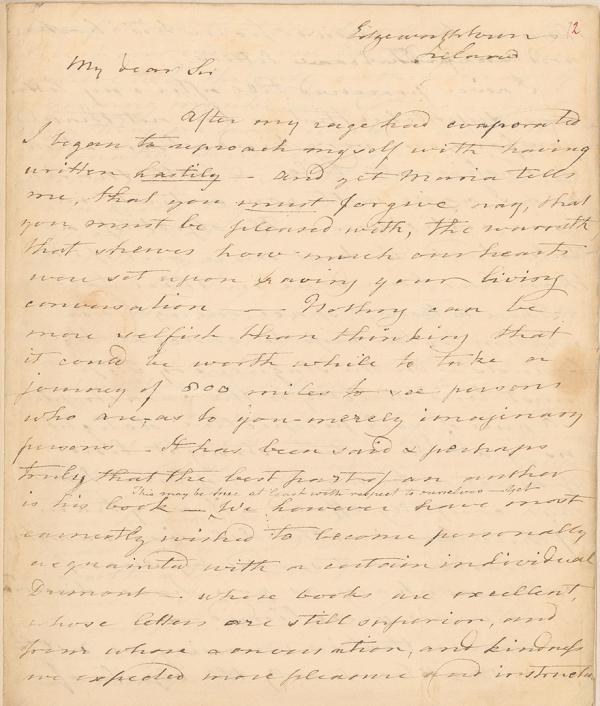 12
Edgeworthstown
Ireland
My dear Sir
After my rage had evaporated
I began to reproach myself with having
written hastily - and yet Maria tells
me, that you must forgive, nay, that
you must be pleased with, the warmth
that shewes how much our hearts
were set upon having your living
conversation — Nothing can be
more selfish than thinking that
it could be worth while to take a
journey of 800 miles to see persons
who are, as to you - merely imaginary
persons - It has been said & perhaps
truly that the best part of an author
This may be true at least with respect to ourselves - yet
is his book - We however have most
earnestly wished to become personally
acquainted with a certain individual
Dumont - whose books are excellent,
whose letters are still superior, and
from whose conversation, and kindness
we expected more pleasure and instructn